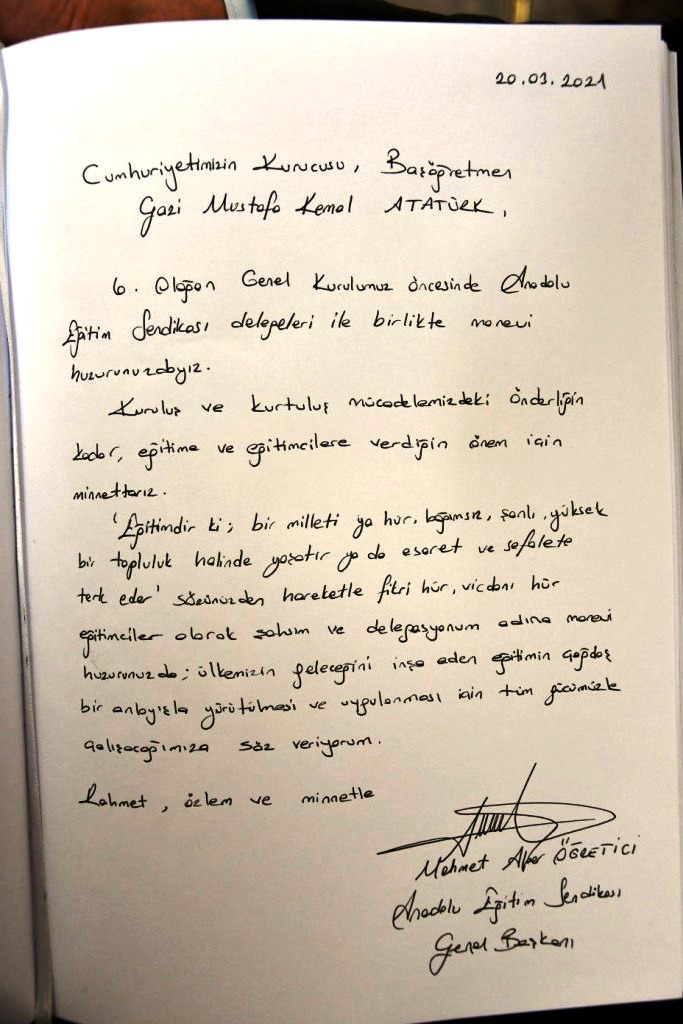 20.03.2021
Cumhuriyetimizin Kurucusu, Başöğretmen
Gazi Mustafa Kemal ATATÜRK,
6. Olağan Genel Kurulumuz öncesinde Anadolu
Eğitim Sendikası delegeleri ile birlikte manevi
huzurunuzdayız.
Kuruluş ve kurtuluş mücadelemizdeki önderliğin
kadar, eğitime ve eğitimcilere verdiğin önem için
minnettarız.
'Eğitimdir ki; bir milleti ya hür, bağımsız, şanlı, yüksek
bir topluluk halinde yaşatır ya da esaret ve sefalete
terk eder' sözünüzden hareketle fikri hür, vicdanı hür
eğitimciler olarak şahsım ve delegasyonum adına manevi
huzurunuzda; ülkemizin geleceğini inşa eden eğitimin çağdaş
bir anlayışla yürütülmesi ve uygulanması için tüm gücümüzle
çalışacağımıza söz veriyorum.
Rahmet, özlem ve minnetle
Mehmet Alper ÖĞRETİCİ
Anadolu Eğitim Sendikası
Genel Başkanı